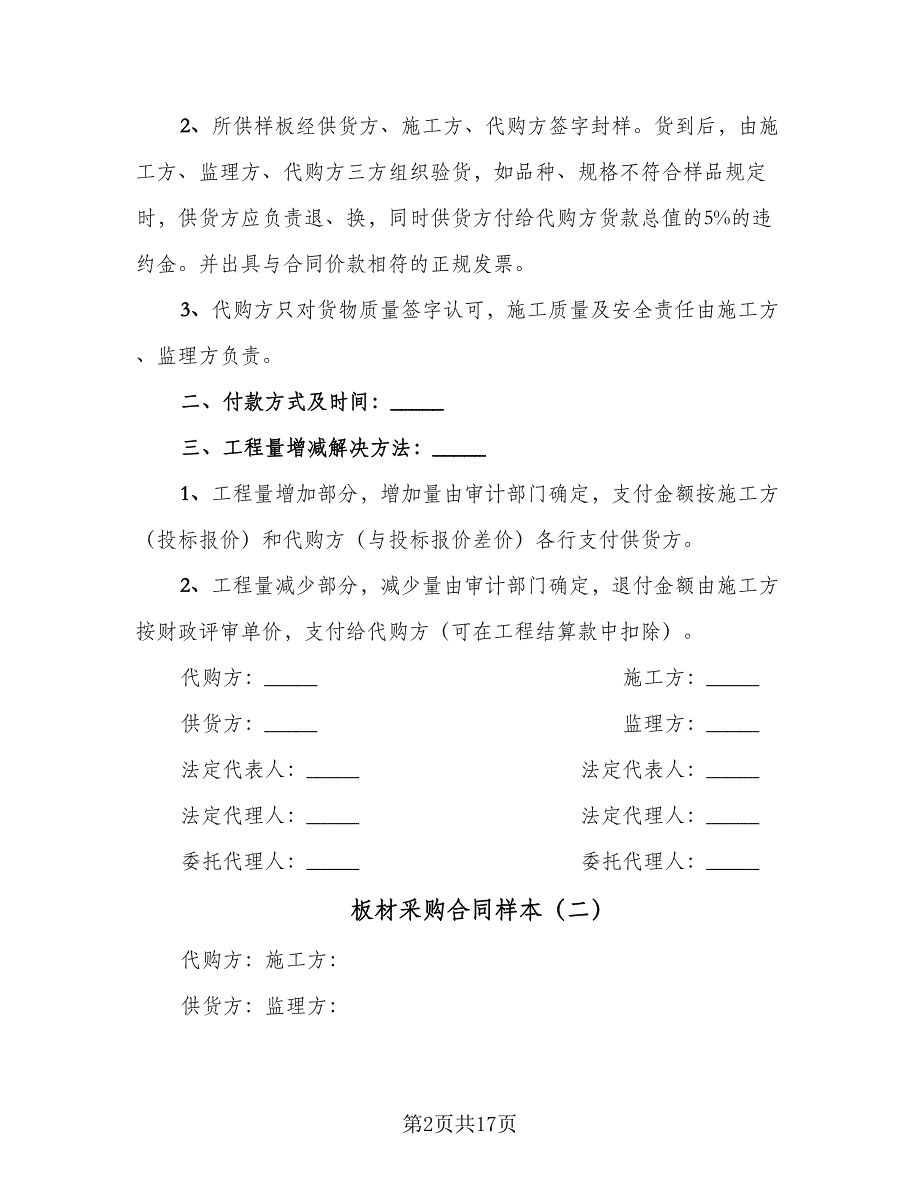 2、所供样板经供货方、施工方、代购方签字封样。货到后，由施
工方、监理方、代购方三方组织验货，如品种、规格不符合样品规定
时，供货方应负责退、换，同时供货方付给代购方货款总值的5%的违
约金。并出具与合同价款相符的正规发票。
3、代购方只对货物质量签字认可，施工质量及安全责任由施工方
、监理方负责。
二、付款方式及时间：_____
三、工程量增减解决方法：_____
1、工程量增加部分，增加量由审计部门确定，支付金额按施工方
（投标报价）和代购方（与投标报价差价）各行支付供货方。
2、工程量减少部分，减少量由审计部门确定，退付金额由施工方
按财政评审单价，支付给代购方（可在工程结算款中扣除）。
代购方：_____ 施工方：_____
供货方：_____ 监理方：_____
法定代表人：_____ 法定代表人：_____
法定代理人：_____ 法定代理人：_____
委托代理人：_____ 委托代理人：_____
板材采购合同样本（二）
代购方：施工方：
供货方：监理方：
第2页共17页